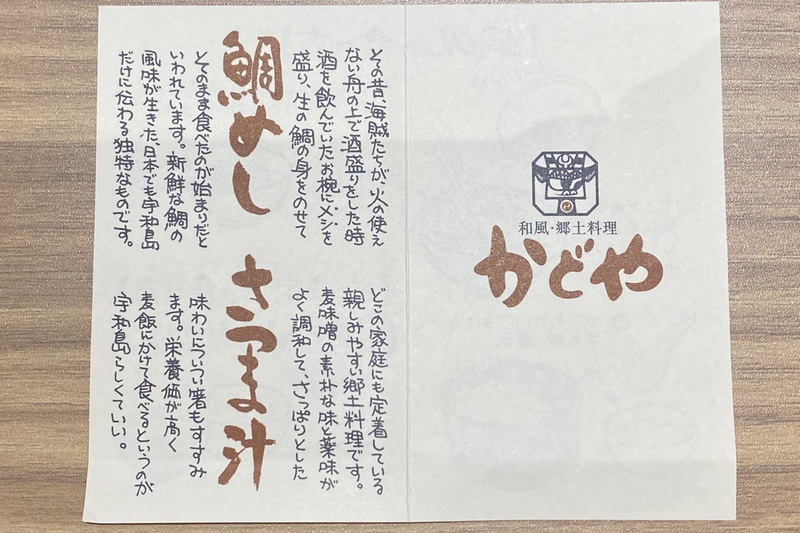 和風・郷土料理
かどや
鯛めし
その昔、海賊たちが、火の使え
ない舟の上で酒盛りをした時
酒を飲んでいたお椀に、メシを
盛り、生の鯛の身をのせて
そのまま食べたのが始まりだと
いわれています。新鮮な鯛の
風味が生きた、日本でも宇和島
だけに伝わる独特なものです。
さつま汁
どこの家庭にも定着している
親しみやすい郷土料理です。
麦味噌の素朴な味と薬味が
よく調和して、さっぱりとした
味わいについつい箸もすすみ
ます。栄養価が高く
麦飯にかけて食べるというのが
宇和島らしくていい。